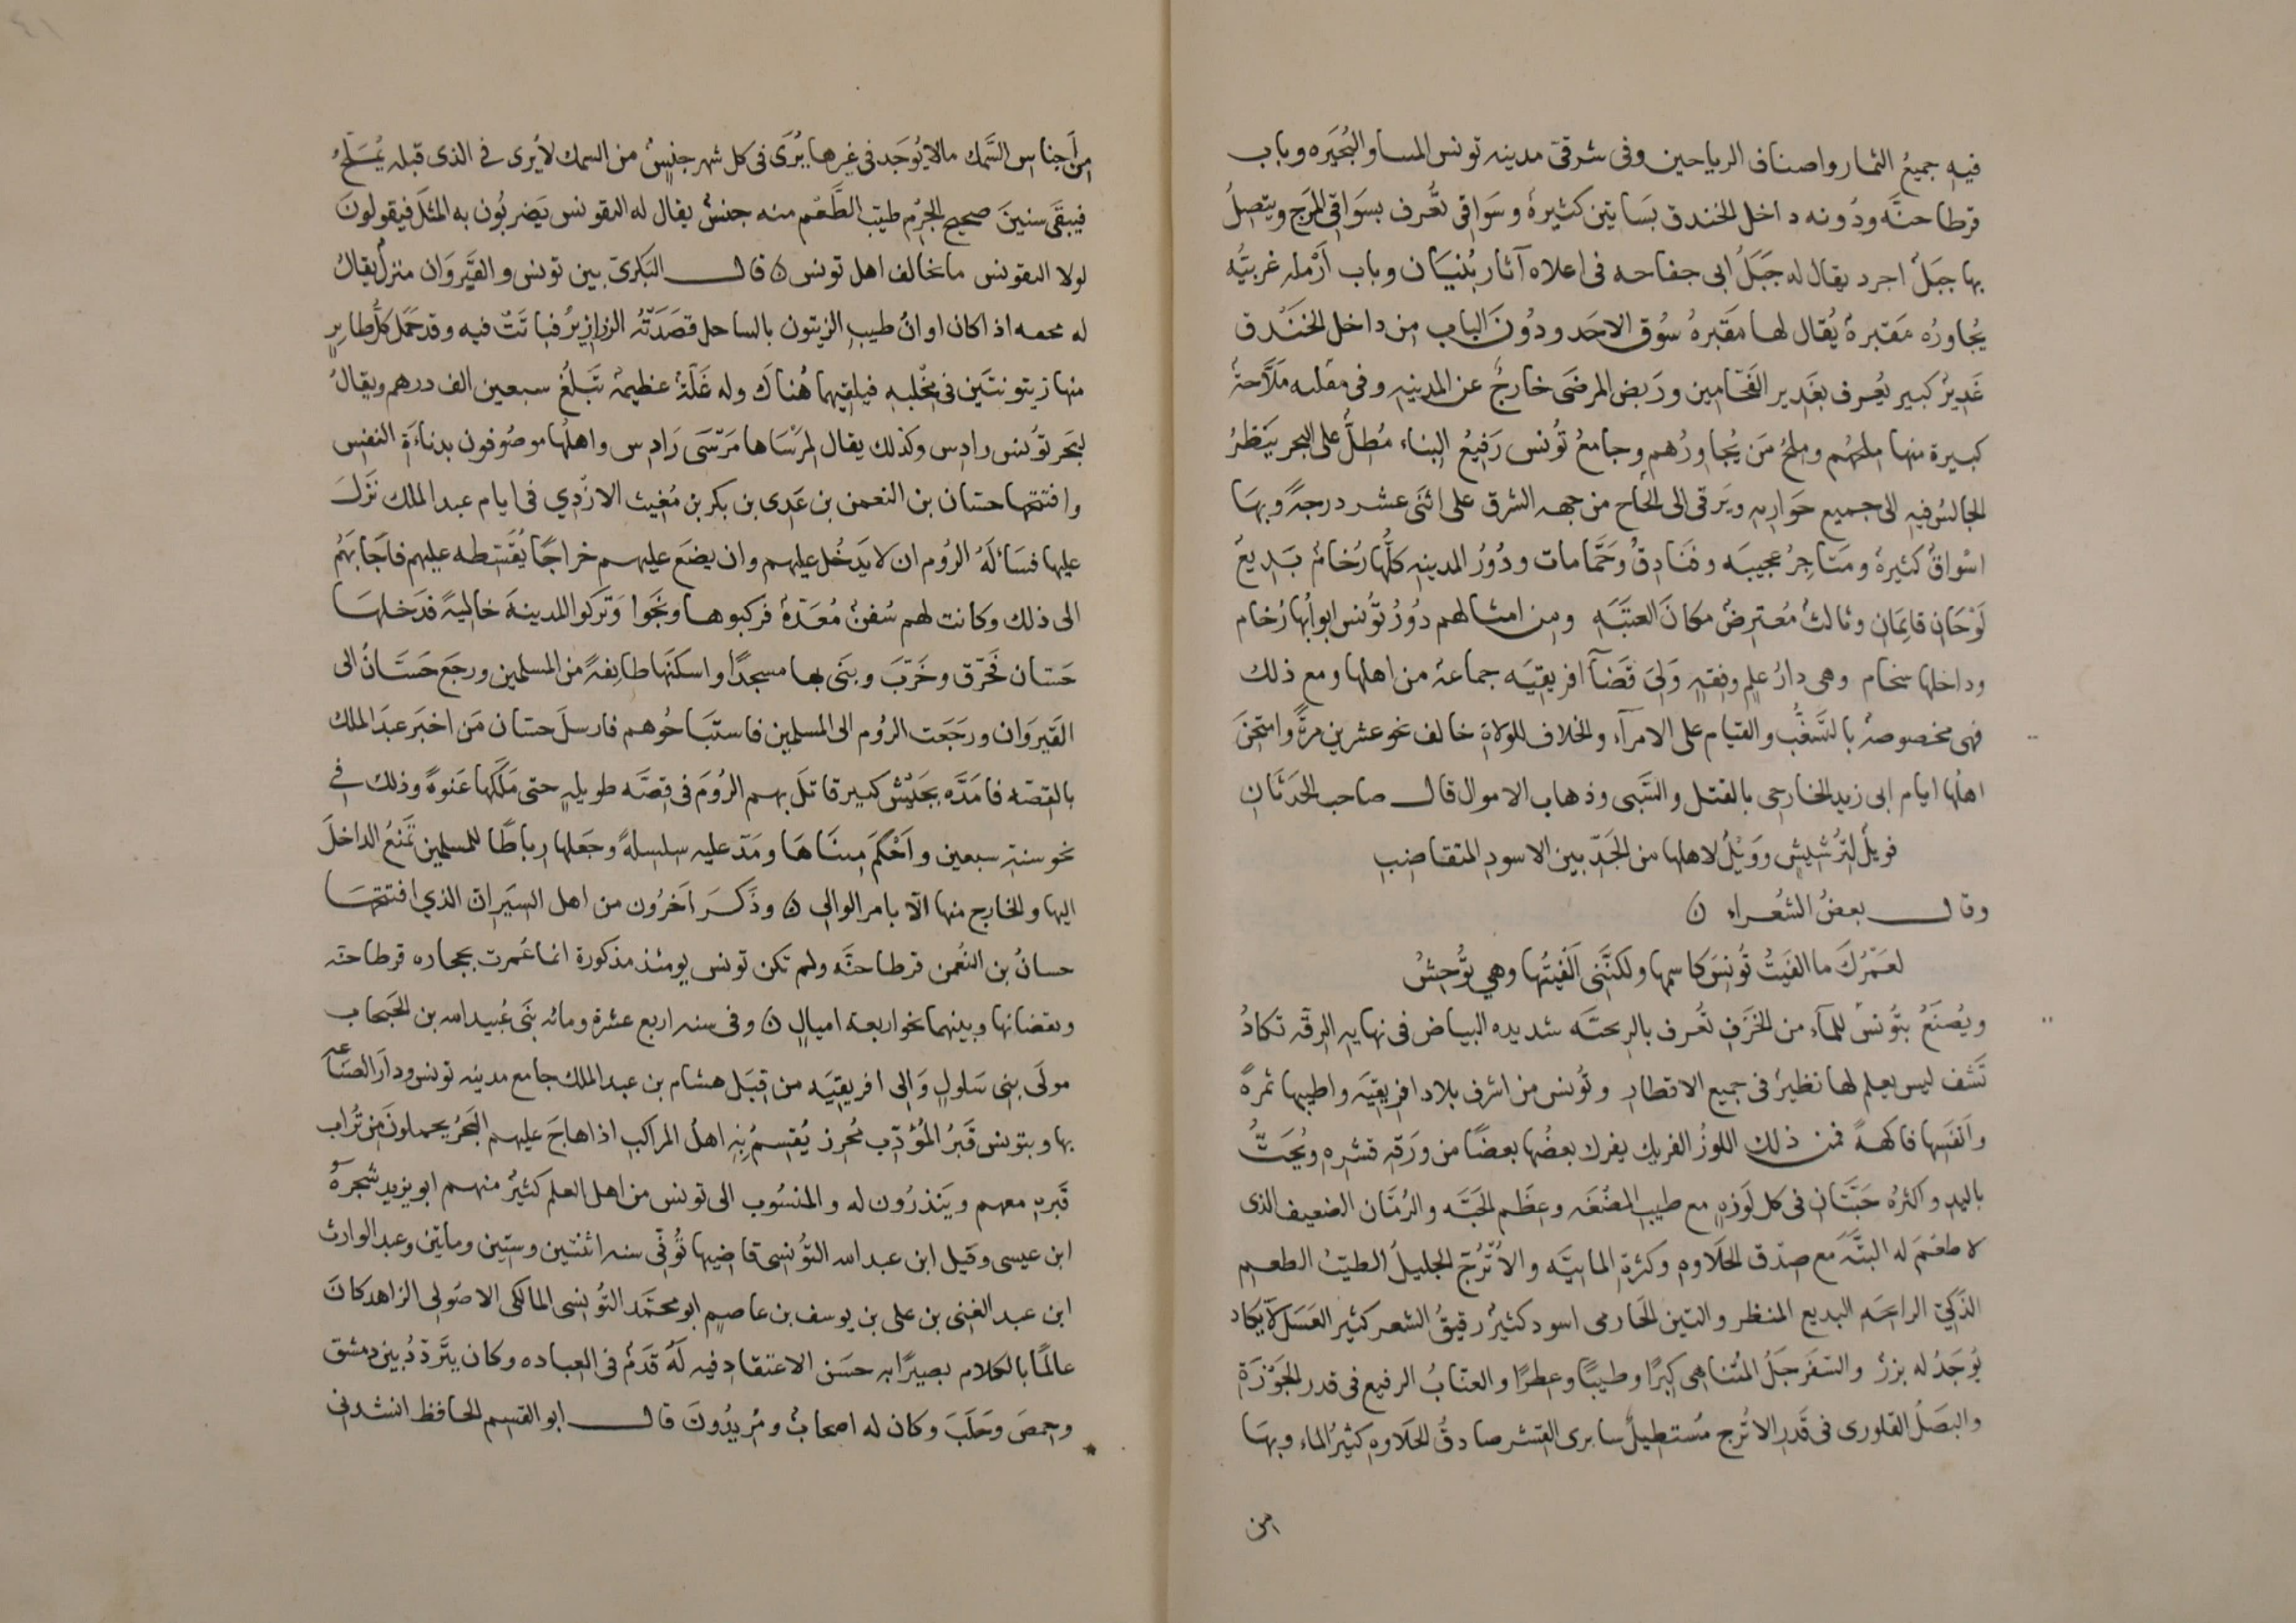 فيه جميعُ الثمار واصناف الرياحين وفى شرقى مدينه تونس المسا والبُحَيره وباب
قرطاحنَّه ودُونه داخل الخندق بسَاتين كثيرةُ وسَواقى تُعرف بسَواقى المرَج ويتصلُ
بها جبَلُ اجرد يقال له جَبَلُ ابى جفاحه فى اعلاه آثار بُنيان وباب اَرْطه غربيَّه
يُجاورُه مَقبرةُ يُقال لها مَقبرهُ سُوق الاحَد ودُونَ الباب من داخل الخَنْدق
غَديرُ كبير يُعرف بغَدير الفَحّامين ورَبض المرضَى خارجُ عن المدينه وفى مقله مَلاَّحةُ
كبيرة منها ملحُهم وملحُ مَن يُجاورُهم وجامعُ تُونس رَفيعُ البناء مُطلُّ على البحر يَنظرُ
الجالسُ فيه الى جميع حَواريه ويَرقى الى الجاح من جهه الشرق على اثنَى عشر درجةً وبهَا
اسْواقُ كثيرهُ ومَتاجرُ عجيبَه وفنَادقُ وحَمَّامات ودُورُ المدينه كلُّها رُخامُ بَديعُ
لَوْحَان قايمَان وثالثُ مُعترضُ مكانَ العتَبَه ومن امثالهم دُورُ تُونس ابوابُها رُخام
وداخلها سخام وهى دارُ علمٍ وفقهٍ وَلىَ قَضآَ افريقيَه جماعةُ من اهلها ومع ذلك
فهى مخصوصةُ بالتشَغُّب والقيام على الامرآء والخلاف للولاة خالف نحو عشرين مرةً وامتُحنَ
اهلُها ايام ابى زيد الخارجى بالقتل والسَّبى وذهاب الاموال قال صاحب الحَدَثَان
فويلُ لتَرشيشٍ ووَيْلُ لاهلها من الجَدّ بين الاسود المتقاضب
وقال بعضُ الشُعراء
لعَمْرُكَ ما الفَيتُ تُونسَ كاسمها ولكنَّنى اَلفَيتُها وهى تُوحشُ
ويُصنَعُ بتُونسَ للمآء من الخَزَف تُعرف بالريحيَّه شديده البياض فى نهايه الرقه تكادُ
تَشف ليس يعلم لها نظيرُ فى جميع الاقطار وتُونس من اشرف بلاد افريقيَه واطيبها ثمرةً
وانفَسها فاكهةً فمن ذلك اللوزُ الفريك يفرك بعضُها بعضًا من ورَقه قشره ويُحَتُّ
باليد واكثرُه حَبَّتَان فى كل لَوزهٍ مع طيب المضُغَه وعظَم الحَبَّه والرُمَّان الضعيف الذى
لا طعْمَ له البتَّه مع صدَق الحلاوه وكثرة المائيَّه والاُتْرُجّ الجليلُ الطيّبُ الطعم
الذَكىّ الرائحَه البديع المنظر والتين الخارمى اسود كثيرُ رقيقُ الشعر كثير العَسَل لا يَكاد
يُوجَدُ له بزرُ والسَفَرجَلُ المُتناهى كبرًا وطيبًا وعطرًا والعنّابُ الرفيع فى قدر الجَوْزَة
والبصَلُ القلورى فى قَدر الاتُرج مُستطيلُ سابرى القشر صادقُ الحلاوه كثيرُ الماء وبهَا
من
من اَجناس السَّمك ما لا يُوجَد فى غيرها يُرَى فى كل شهر جنسُ من السمك لا يُرى فى الذى قبله يُمَلَّح
فيبقَى سنينَ صحيح الجرْم طيّبَ الطَّعْم منه جنسُ يقال له البقونس يَضربُون به المثلَ فيقولونَ
لولا البقونس ما خالف اهل تونس قال البَكرى بين تونس والقَيروَان منزل يقالُ
له محمه اذا كان اوانُ طيب الزيتون بالساحل قصَدَتْهُ الزرازيرُ فباتَتُ فيه وقد حَمَل كلُّ طاير
منها زيتونتَين فى مخْلبه فيلقيهما هُناكَ وله غَلّةُ عظيمةُ تَبلغُ سبعين الف درهم ويقالُ
لبَحر تُونس رادس وكذلك يقال لمَرْسَاها مَرْسَى رَادس واهلُها موصُوفون بدناءَة النفس
وافتتحها حسان بن النعمن بن عَدى بن بكر بن مُغيث الازْدى فى ايام عبد الملك نَزَلَ
عليها فسَألَهُ الرُوم ان لا يَدخُل عليهم وان يضعَ عليهم خراجًا يُقَسّطه عليهم فاَجَابَهُم
الى ذلك وكانت لهم سُفنُ مُعَدّةُ فركبوها ونَجَوا وَتَركُوا المدينهَ خاليةً فدَخلهَا
حَسان فحَرّق وخَرّبَ وبَنَى بها مسجدًا واسكنَها طائفةً من المسلمين ورجَع حَسَّانُ الى
القَيرَوان ورجَعَت الرُوم الى المسلمين فاستَباحُوهم فارسلَ حسان مَن اخبرَ عبدَ الملك
بالقصَه فامَدَّه بجَيْش كبير قاتلَ بهم الرُومَ فى قصَّه طويلهٍ حتى مَلَكَها عَنوهً وذلك فى
نحو سنةِ سبعين واَحْكَمَ مينَاهَا ومَدّ عليه سلسلةً وجَعلها رباطًا للمسلمين تَمْنعُ الداخلَ
اليها والخارج منها الاّ بامر الوالى وذَكرَ اَخرُون من اهل السيَر ان الذى افتتحهَا
حسانُ بن النُعمن قرطاحنَّه ولم تكن تونس يومئذ مذكورة انما عُمرت بحجاره قرطاحنه
وبقضانها وبينهما نحو اربعه اميالٍ وفى سنه اربع عشرة ومائه بَنَى عُبيد الله بن الحَبحاب
مولَى بنى سَلول وَالى افريقيَه من قبَل هشام بن عبد الملك جامع مدينه تونس ودارَ الصنَاعه
بها وبتونس قَبرُ المُؤدّب مُحرز يُقسمُ به اهلُ المراكب اذا هاجَ عليهم البَحرُ يحملونَ من تُراب
قَبره معهم ويَنذرُون له والمنسُوب الى تونس من اهل العلم كثيرُ منهم ابو يزيد شجرةُ
ابن عيسى وقيل ابن عبد الله التُونسى قاضيها تُوفّى سنه اثنتين وستين ومايتين وعبد الوارث
ابن عبد الغنى بن على بن يوسف بن عاصم ابو محمَّد التُونسى المالكى الاصُولى الزاهد كانَ
عالمًا بالكلام بصيرًا به حسَن الاعتقاد فيه لَهُ قَدَمُ فى العباده وكان يتَردّدُ بين دمشق
وحمصَ وحَلَبَ وكان له اصحابُ ومُريدُونَ قال ابو القسم الحافظ انشدنى